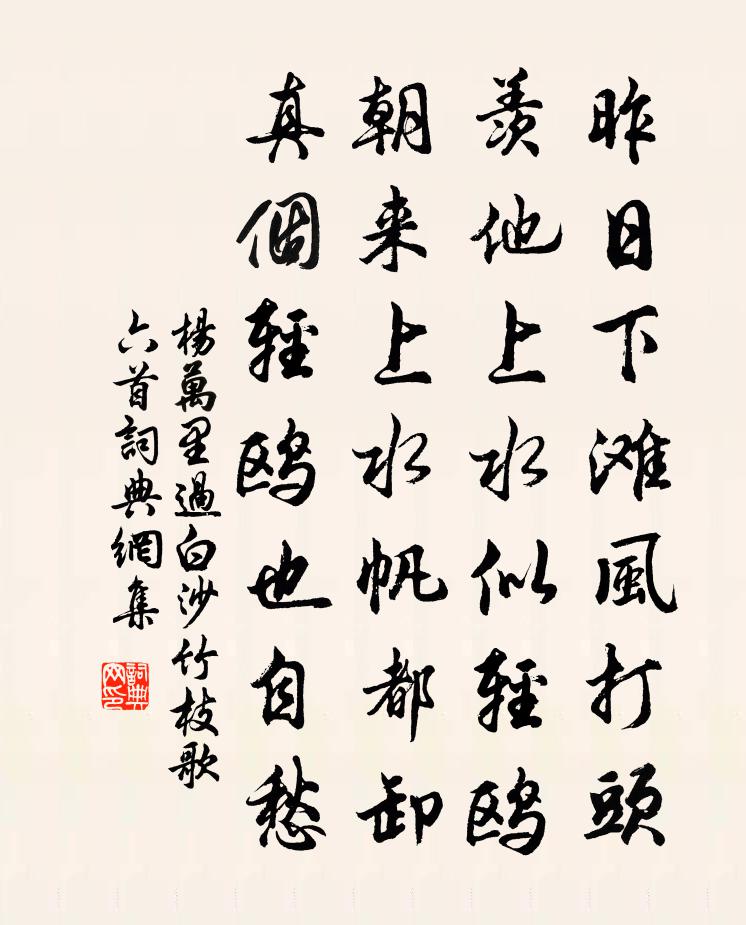 昨日下滩風打頭
羨他上水似輕鸥
朝来上水帆都卸
真個輕鸥也自愁
楊萬里過白沙竹枝歌
六首詞典網集
詞典
网印